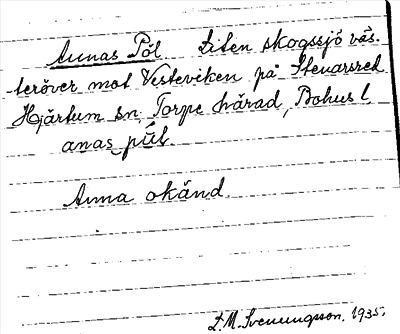 Annas Pöl. Liten skogssjö väs-
teröver mot Västeviken på Stenarsred
Hjärtum sn Torpe härad, Bohus l
anas pul.
Anna okänd.
L.M. Svenungsson. 1935.